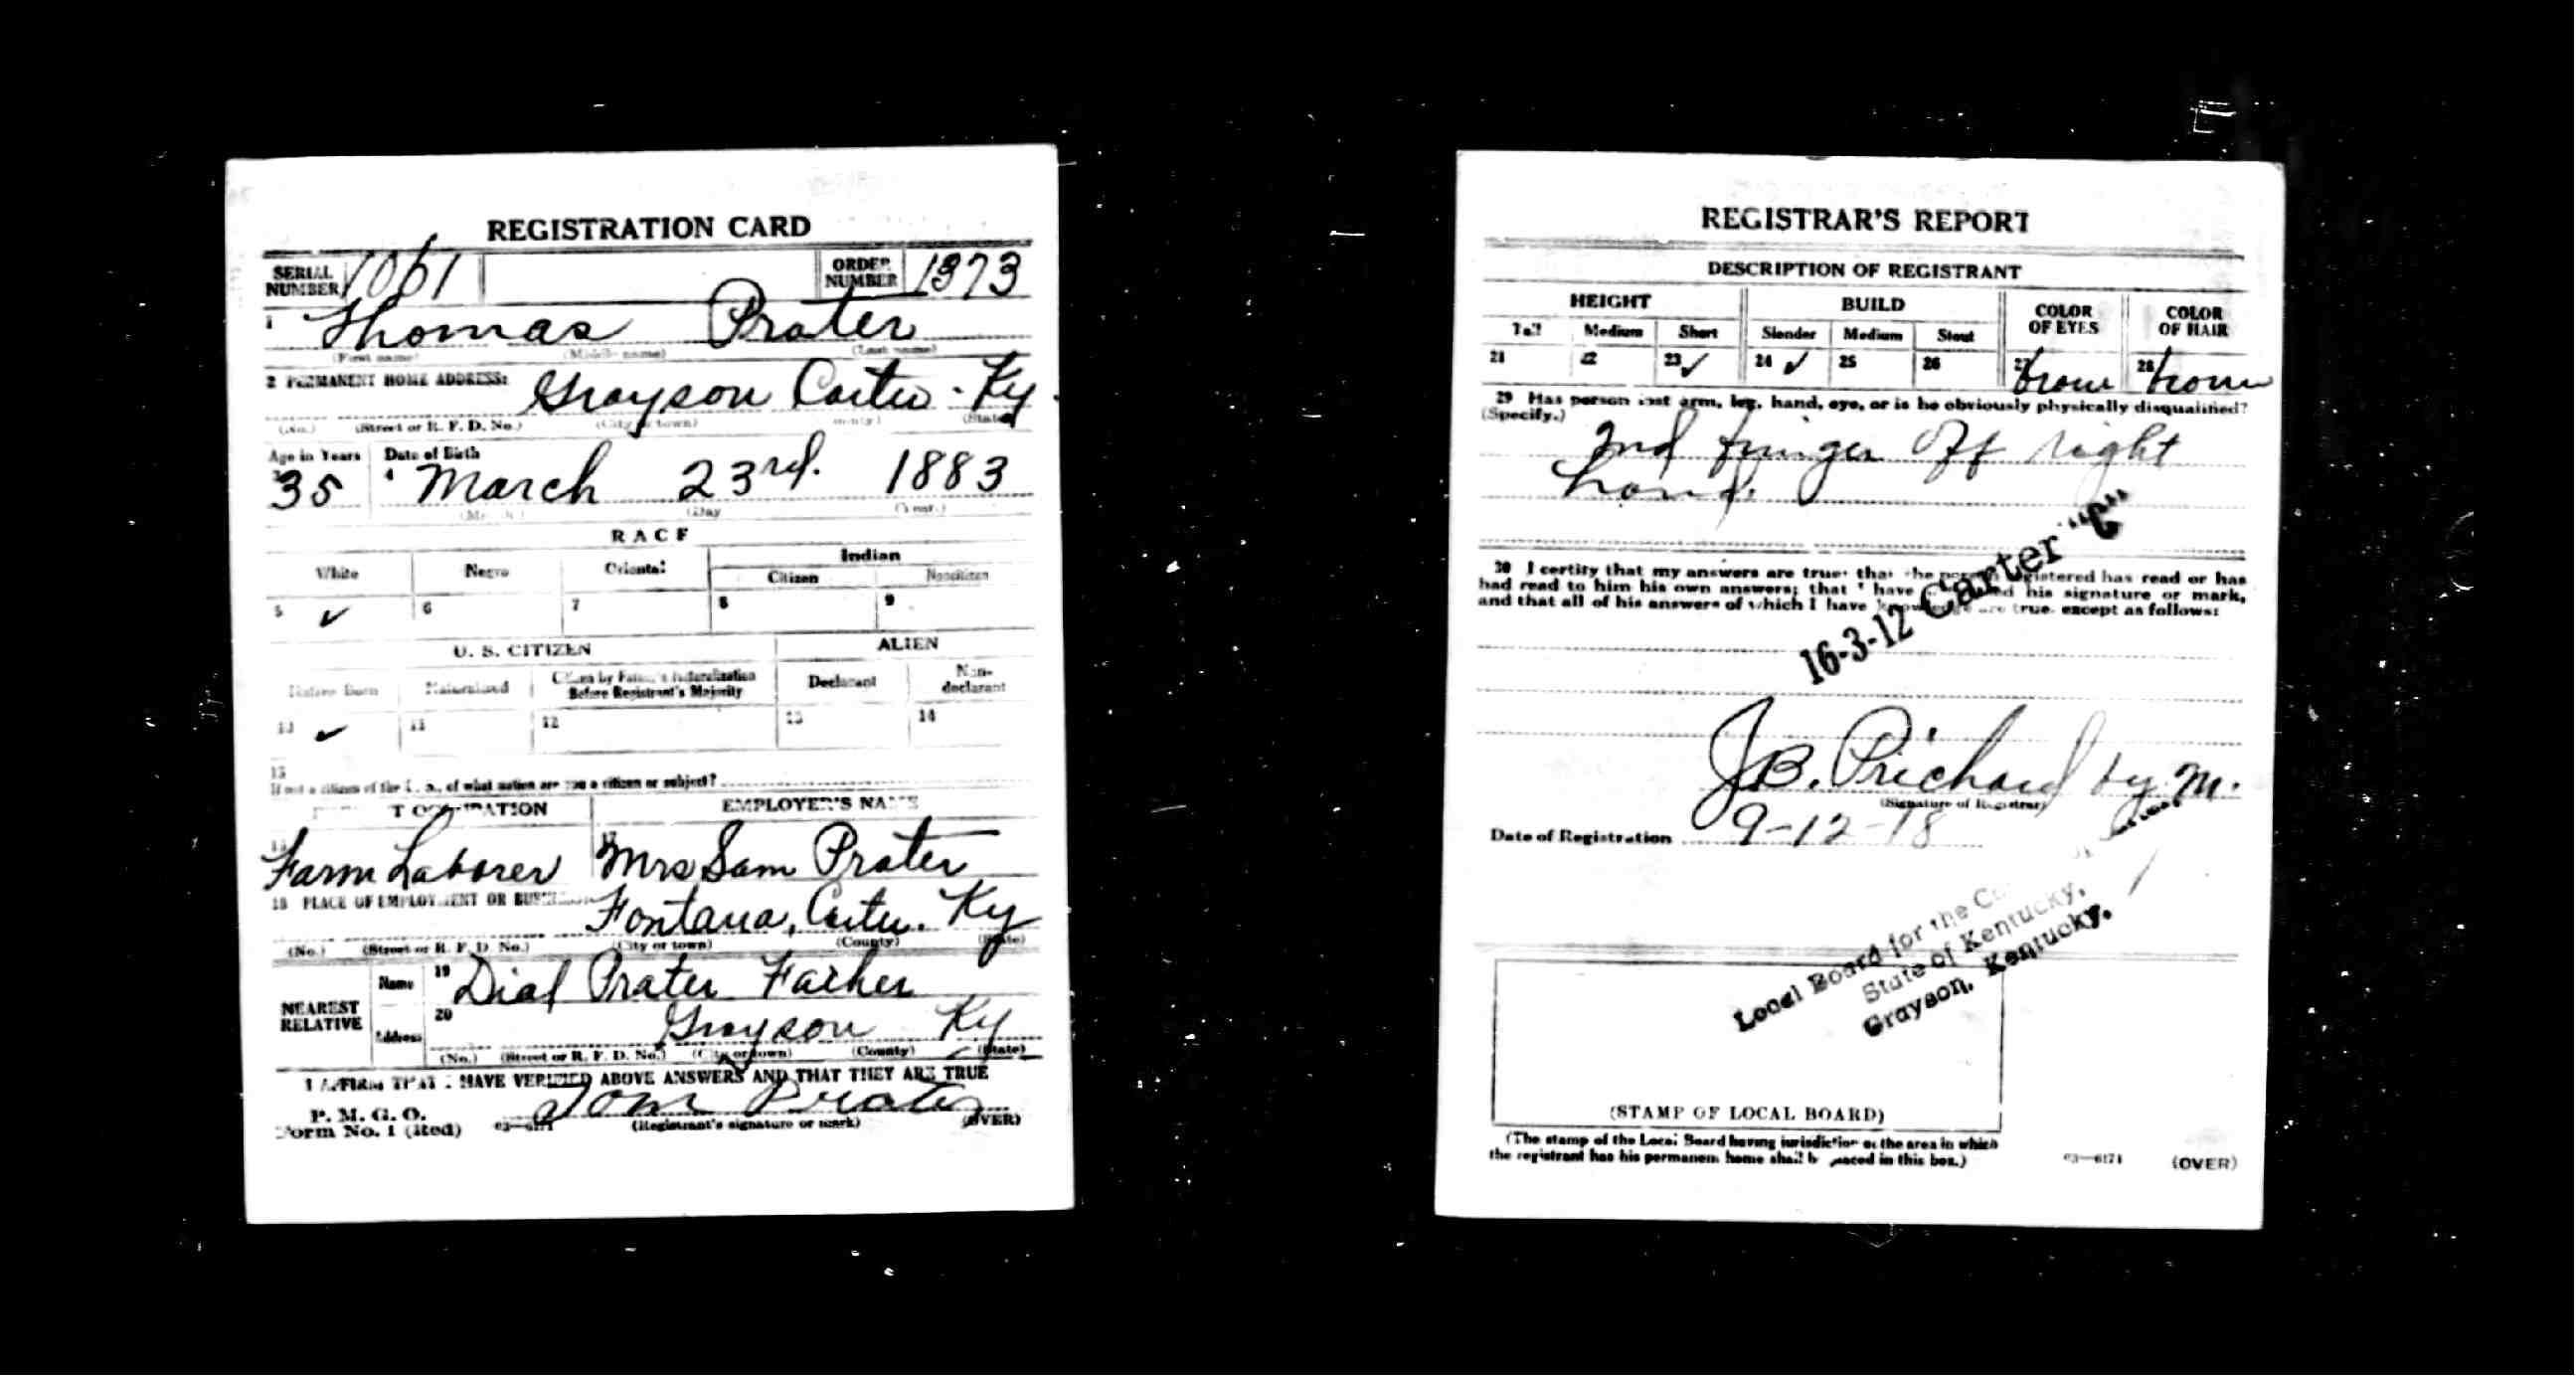 REGISTRATION CARD
SERIAL NUMBER 1061
ORDER NUMBER 1373
1 Thomas Prater
(First name) (Middle name) (Last name)
2 PERMANENT HOME ADDRESS: Grayson Carter - Ky
(No.) (Street or R. F. D. No.) (City or town) (County) (State)
Age in Years Date of Birth
3 35 4 March 23rd. 1883
(Month.) (Day (Year.)
RACE
White Negro Oriental Indian
Citizen Noncitizen
5 ✓ 6 7 8 9
U. S. CITIZEN ALIEN
Native Born Naturalized Citizen by Father's Naturalization Before Registrant's Majority Declarant Non-declarant
10 ✓ 11 12 13 14
15
If not a citizen of the U. S., of what nation are you a citizen or subject?
PRESENT OCCUPATION EMPLOYER'S NAME
16 Farm Laborer 17 Mrs Sam Prater
18 PLACE OF EMPLOYMENT OR BUSINESS: Fontana, Carter. Ky
(No.) (Street or R. F. D. No.) (City or town) (County) (State)
NEAREST RELATIVE
Name 19 Dial Prater Father
Address 20 Grayson Ky
(No.) (Street or R. F. D. No.) (City or town) (County) (State)
I AFFIRM THAT I HAVE VERIFIED ABOVE ANSWERS AND THAT THEY ARE TRUE
P. M. G. O.
Form No. 1 (Red) 03—6171 Tom Prater
(Registrant's signature or mark) (OVER)
REGISTRAR'S REPORT
DESCRIPTION OF REGISTRANT
HEIGHT BUILD COLOR OF EYES COLOR OF HAIR
Tall Medium Short Slender Medium Stout
21 22 23 ✓ 24 ✓ 25 26 27 brown 28 brown
29 Has person lost arm, leg, hand, eye, or is he obviously physically disqualified?
(Specify.)
2nd finger off right
hand.
30 I certify that my answers are true; that the person registered has read or has
had read to him his own answers; that I have witnessed his signature or mark,
and that all of his answers of which I have knowledge are true, except as follows:
16-3-12 Carter "C"
J.B. Prichard by M.
(Signature of Registrar)
Date of Registration 9-12-18
Local Board for the
State of Kentucky,
Grayson, Kentucky.
(STAMP OF LOCAL BOARD)
(The stamp of the Local Board having jurisdiction of the area in which
the registrant has his permanent home shall be placed in this box.)
03—6171 (OVER)